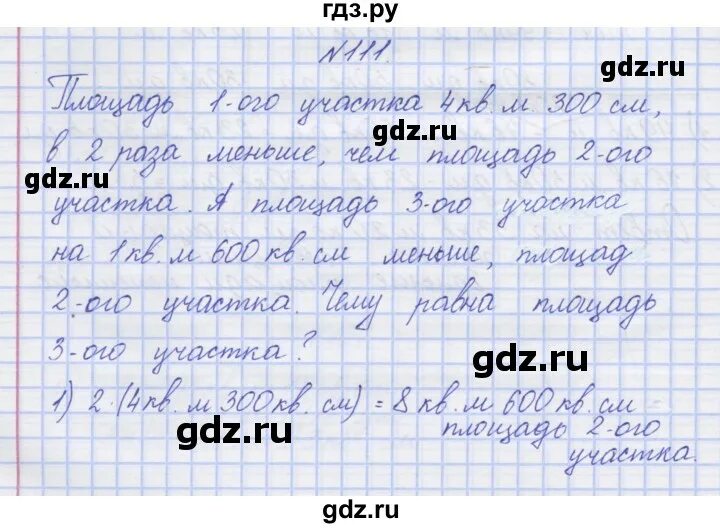 гдз.ру
№111.
Площадь 1-ого участка 4 кв. м 300 см,
gdz.ru
gdz.ru
в 2 раза меньше, чем площадь 2-ого
gdz.ru
участка. А площадь 3-ого участка
на 1 кв. м 600 кв. см меньше, площад
2-ого участка. Чему равна площадь
3-ого участка?
gdz.ru
1) 2·(4 кв. м 300 кв. см) = 8 кв. м 600 кв. см
gdz.ru
площадь 2-ого
участка.
gdz.ru